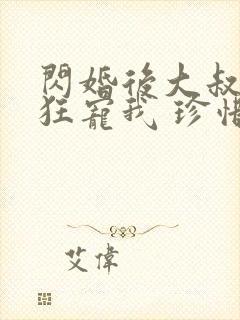 閃婚後大叔
狂寵我 珍惜
艾偉